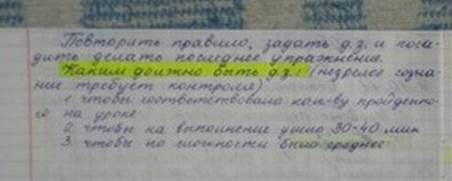 Повторить правило, задать д.з. и поса-
дить делать последнее упражнение.
Каким должно быть д.з.: (незрелое созна-
ние требует контроля)
1. чтобы соответствовало кол-ву пройденно-
го на уроке
2. чтобы на выполнение ушло 30-40 мин
3. чтобы по сложности было средне